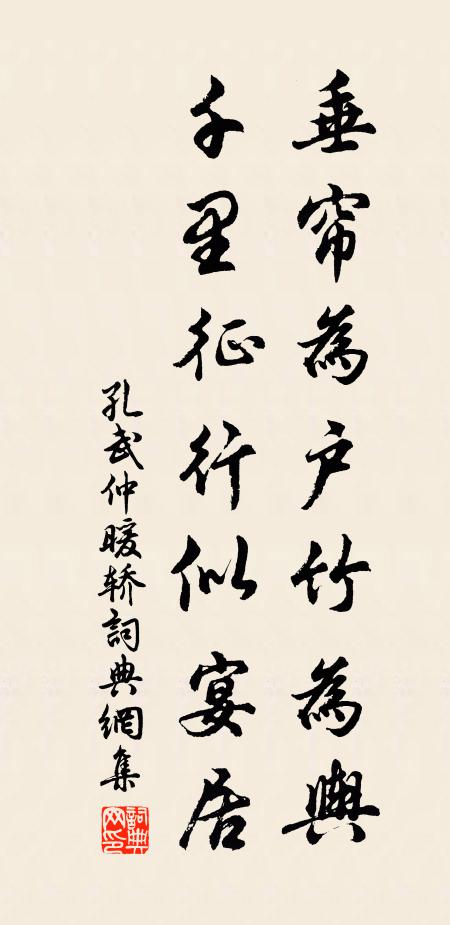 垂帘為户竹為輿
千里征行似宴居
孔武仲暖轿詞典網集
詞典網印